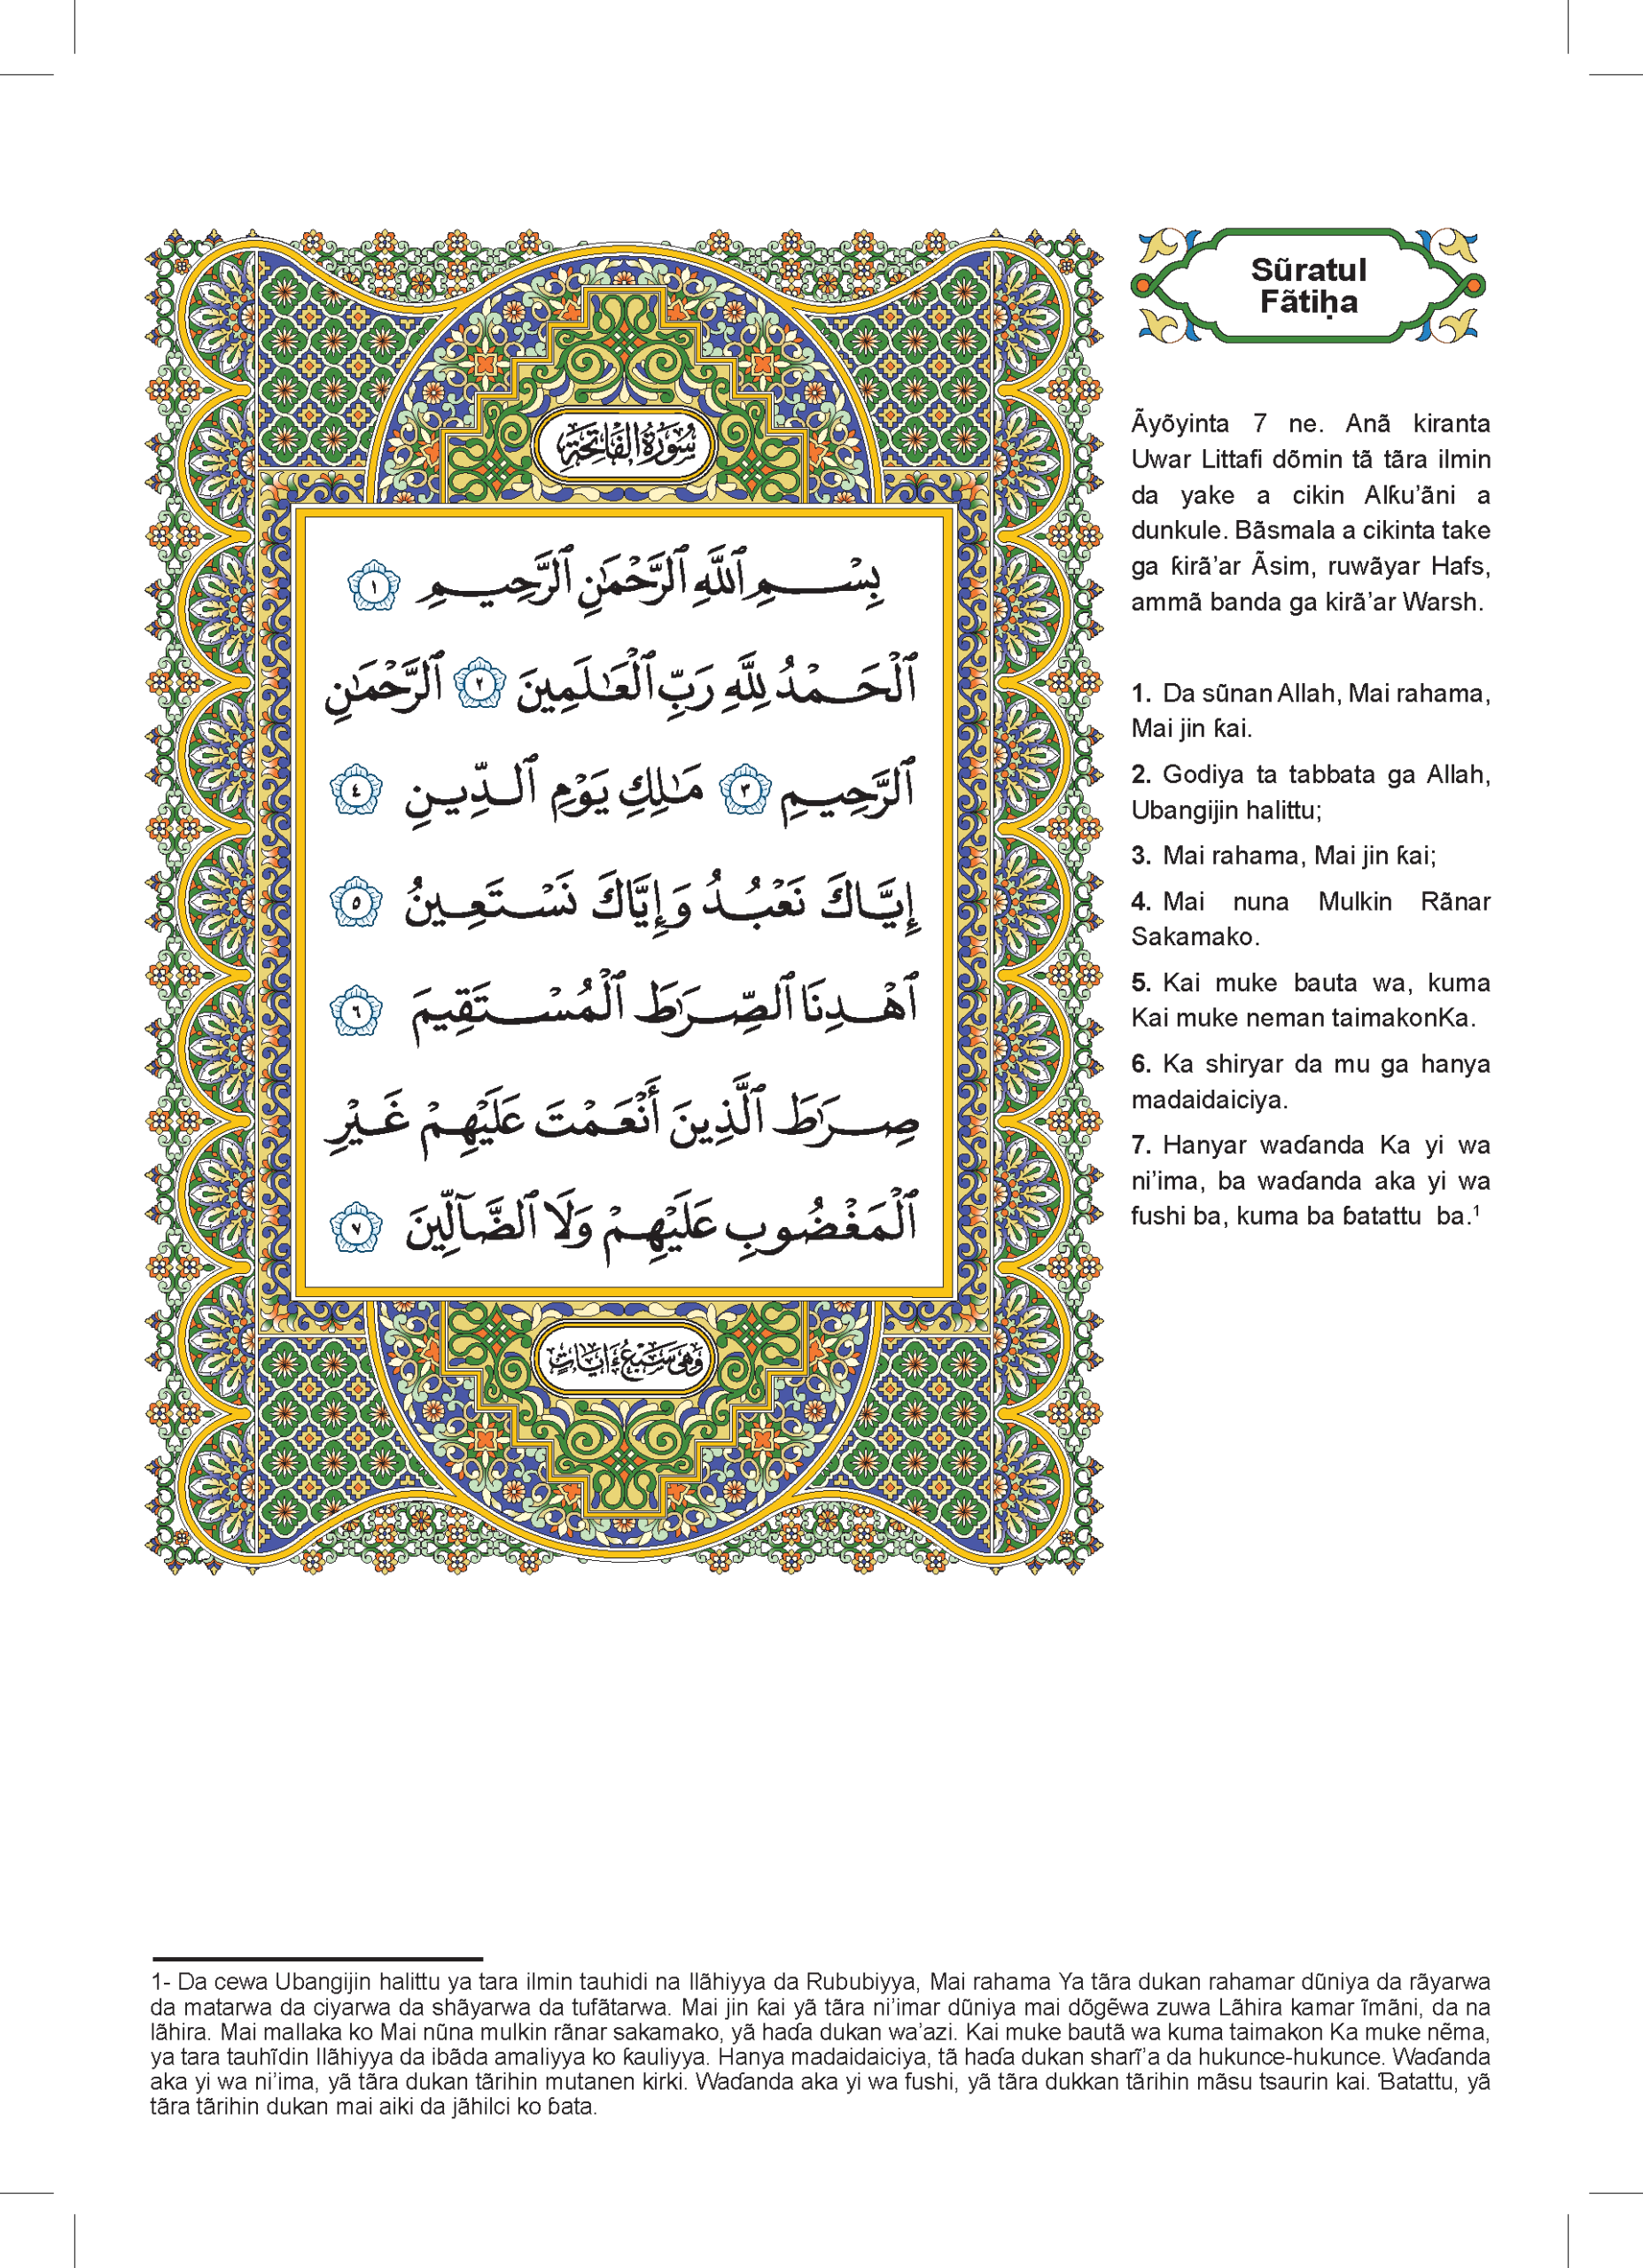 سُورَةُ الْفَاتِحَةِ
بِسْمِ ٱللَّهِ ٱلرَّحْمَٰنِ ٱلرَّحِيمِ ١
ٱلْحَمْدُ لِلَّهِ رَبِّ ٱلْعَٰلَمِينَ ٢ ٱلرَّحْمَٰنِ
ٱلرَّحِيمِ ٣ مَٰلِكِ يَوْمِ ٱلدِّينِ ٤
إِيَّاكَ نَعْبُدُ وَإِيَّاكَ نَسْتَعِينُ ٥
ٱهْدِنَا ٱلصِّرَٰطَ ٱلْمُسْتَقِيمَ ٦
صِرَٰطَ ٱلَّذِينَ أَنْعَمْتَ عَلَيْهِمْ غَيْرِ
ٱلْمَغْضُوبِ عَلَيْهِمْ وَلَا ٱلضَّآلِّينَ ٧
وَهِيَ سَبْعُ ءَايَاتٍ
Sũratul
Fãtiḥa
Ãyõyinta 7 ne. Anã kiranta
Uwar Littafi dõmin tã tãra ilmin
da yake a cikin Alƙu’ãni a
dunkule. Bãsmala a cikinta take
ga ƙirã’ar Ãsim, ruwãyar Hafs,
ammã banda ga kirã’ar Warsh.
1. Da sũnan Allah, Mai rahama,
Mai jin ƙai.
2. Godiya ta tabbata ga Allah,
Ubangijin halittu;
3. Mai rahama, Mai jin ƙai;
4. Mai nuna Mulkin Rãnar
Sakamako.
5. Kai muke bauta wa, kuma
Kai muke neman taimakonKa.
6. Ka shiryar da mu ga hanya
madaidaiciya.
7. Hanyar waɗanda Ka yi wa
ni’ima, ba waɗanda aka yi wa
fushi ba, kuma ba ɓatattu ba.¹
1- Da cewa Ubangijin halittu ya tara ilmin tauhidi na Ilãhiyya da Rububiyya, Mai rahama Ya tãra dukan rahamar dũniya da rãyarwa
da matarwa da ciyarwa da shãyarwa da tufãtarwa. Mai jin ƙai yã tãra ni’imar dũniya mai dõgẽwa zuwa Lãhira kamar ĩmãni, da na
lãhira. Mai mallaka ko Mai nũna mulkin rãnar sakamako, yã haɗa dukan wa’azi. Kai muke bautã wa kuma taimakon Ka muke nẽma,
ya tara tauhĩdin Ilãhiyya da ibãda amaliyya ko ƙauliyya. Hanya madaidaiciya, tã haɗa dukan sharĩ’a da hukunce-hukunce. Waɗanda
aka yi wa ni’ima, yã tãra dukan tãrihin mutanen kirki. Waɗanda aka yi wa fushi, yã tãra dukkan tãrihin mãsu tsaurin kai. Ɓatattu, yã
tãra tãrihin dukan mai aiki da jãhilci ko ɓata.